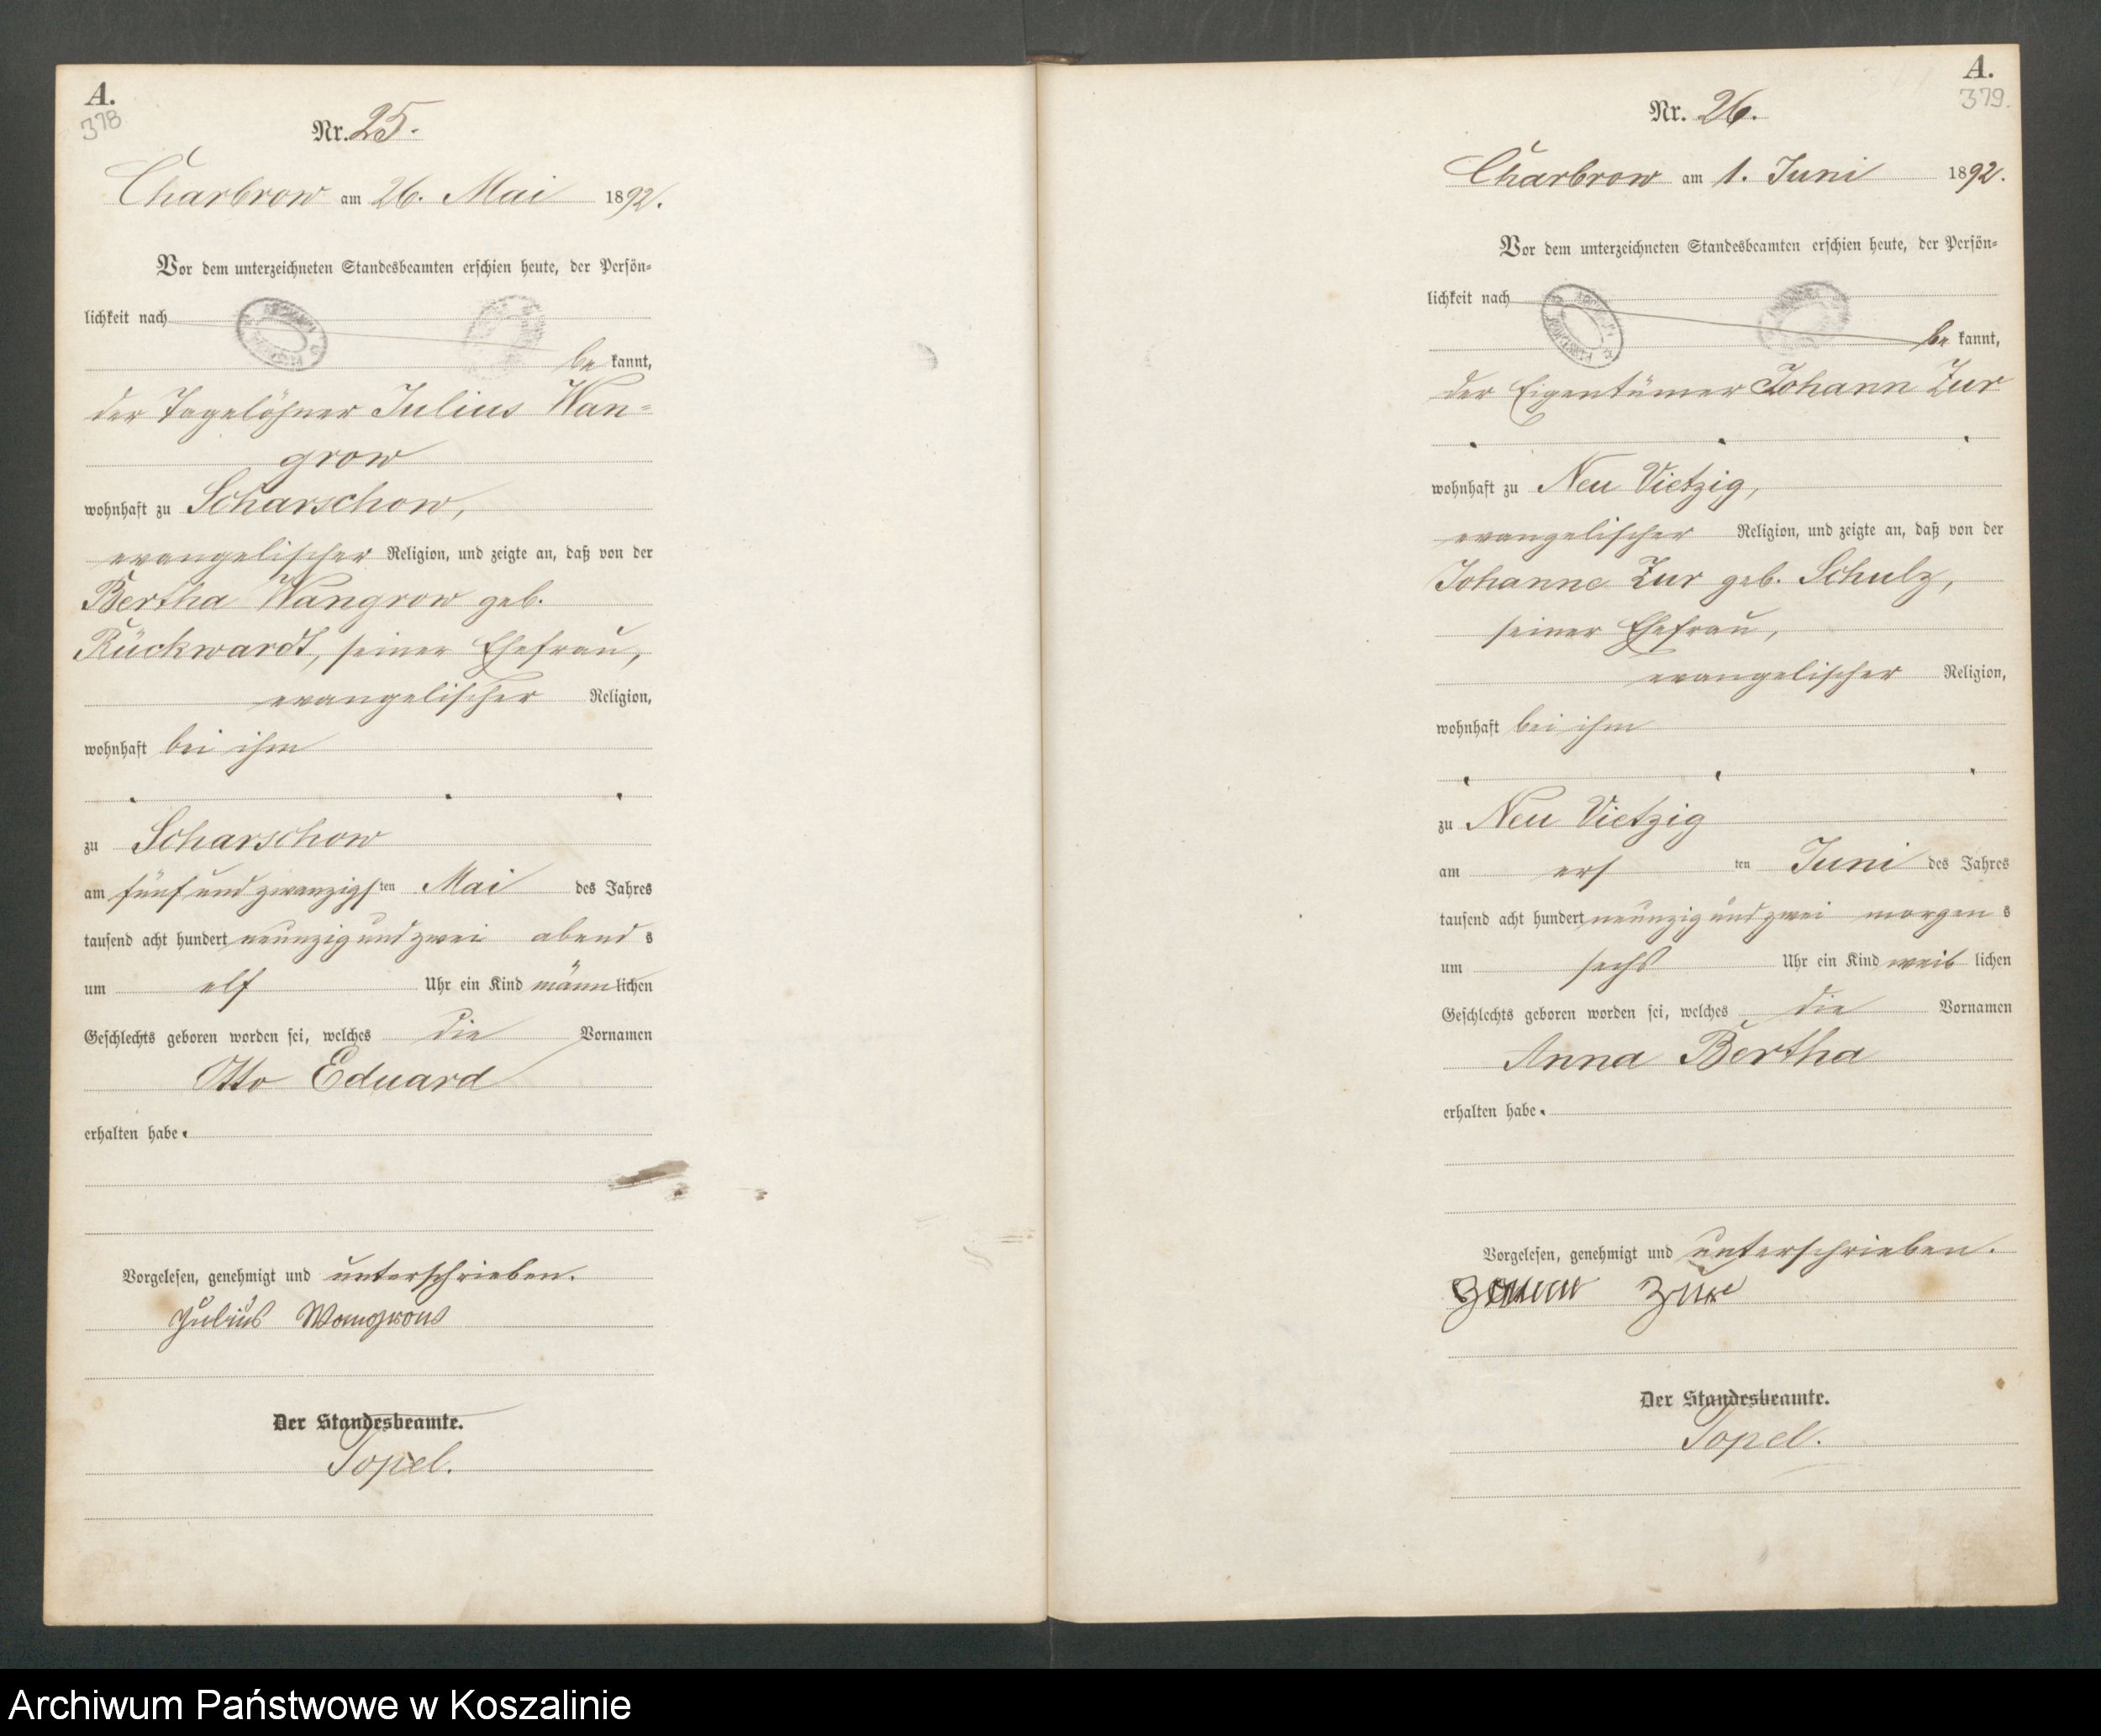 A.
378
Nr. 25.
Charbrow am 26. Mai 1892.
Vor dem unterzeichneten Standesbeamten erschien heute, der Persön-
lichkeit nach
be kannt,
der Tagelöhner Julius Wan-
grow
wohnhaft zu Scharschow,
evangelischer Religion, und zeigte an, daß von der
Bertha Wangrow geb.
Rückwardt, seiner Ehefrau,
evangelischer Religion,
wohnhaft bei ihm
zu Scharschow
am fünf und zwanzigsten Mai des Jahres
tausend acht hundert neunzig und zwei abend s
um elf Uhr ein Kind männlichen
Geschlechts geboren worden sei, welches die Vornamen
Otto Eduard
erhalten habe.
Vorgelesen, genehmigt und unterschrieben.
Julius Wangrow
Der Standesbeamte.
Topel.
A.
379.
Nr. 26.
Charbrow am 1. Juni 1892.
Vor dem unterzeichneten Standesbeamten erschien heute, der Persön-
lichkeit nach
be kannt,
der Eigentümer Johann Zur
wohnhaft zu Neu Vietzig,
evangelischer Religion, und zeigte an, daß von der
Johanne Zur geb. Schulz,
seiner Ehefrau,
evangelischer Religion,
wohnhaft bei ihm
zu Neu Vietzig
am ers ten Juni des Jahres
tausend acht hundert neunzig und zwei morgen s
um sechs Uhr ein Kind weib lichen
Geschlechts geboren worden sei, welches die Vornamen
Anna Bertha
erhalten habe.
Vorgelesen, genehmigt und unterschrieben.
Zur
Der Standesbeamte.
Topel.
Archiwum Państwowe w Koszalinie